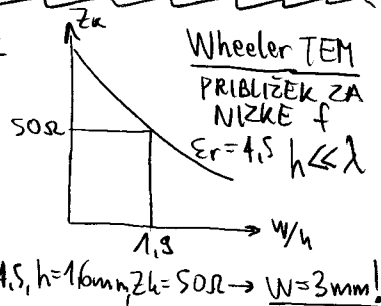 Zk
Wheeler TEM
PRIBLIŽEK ZA
NIZKE f
50Ω
εr=4,5 h≪λ
1,9
W/h
4,5, h=1,6mm, Zk=50Ω → W=3mm!